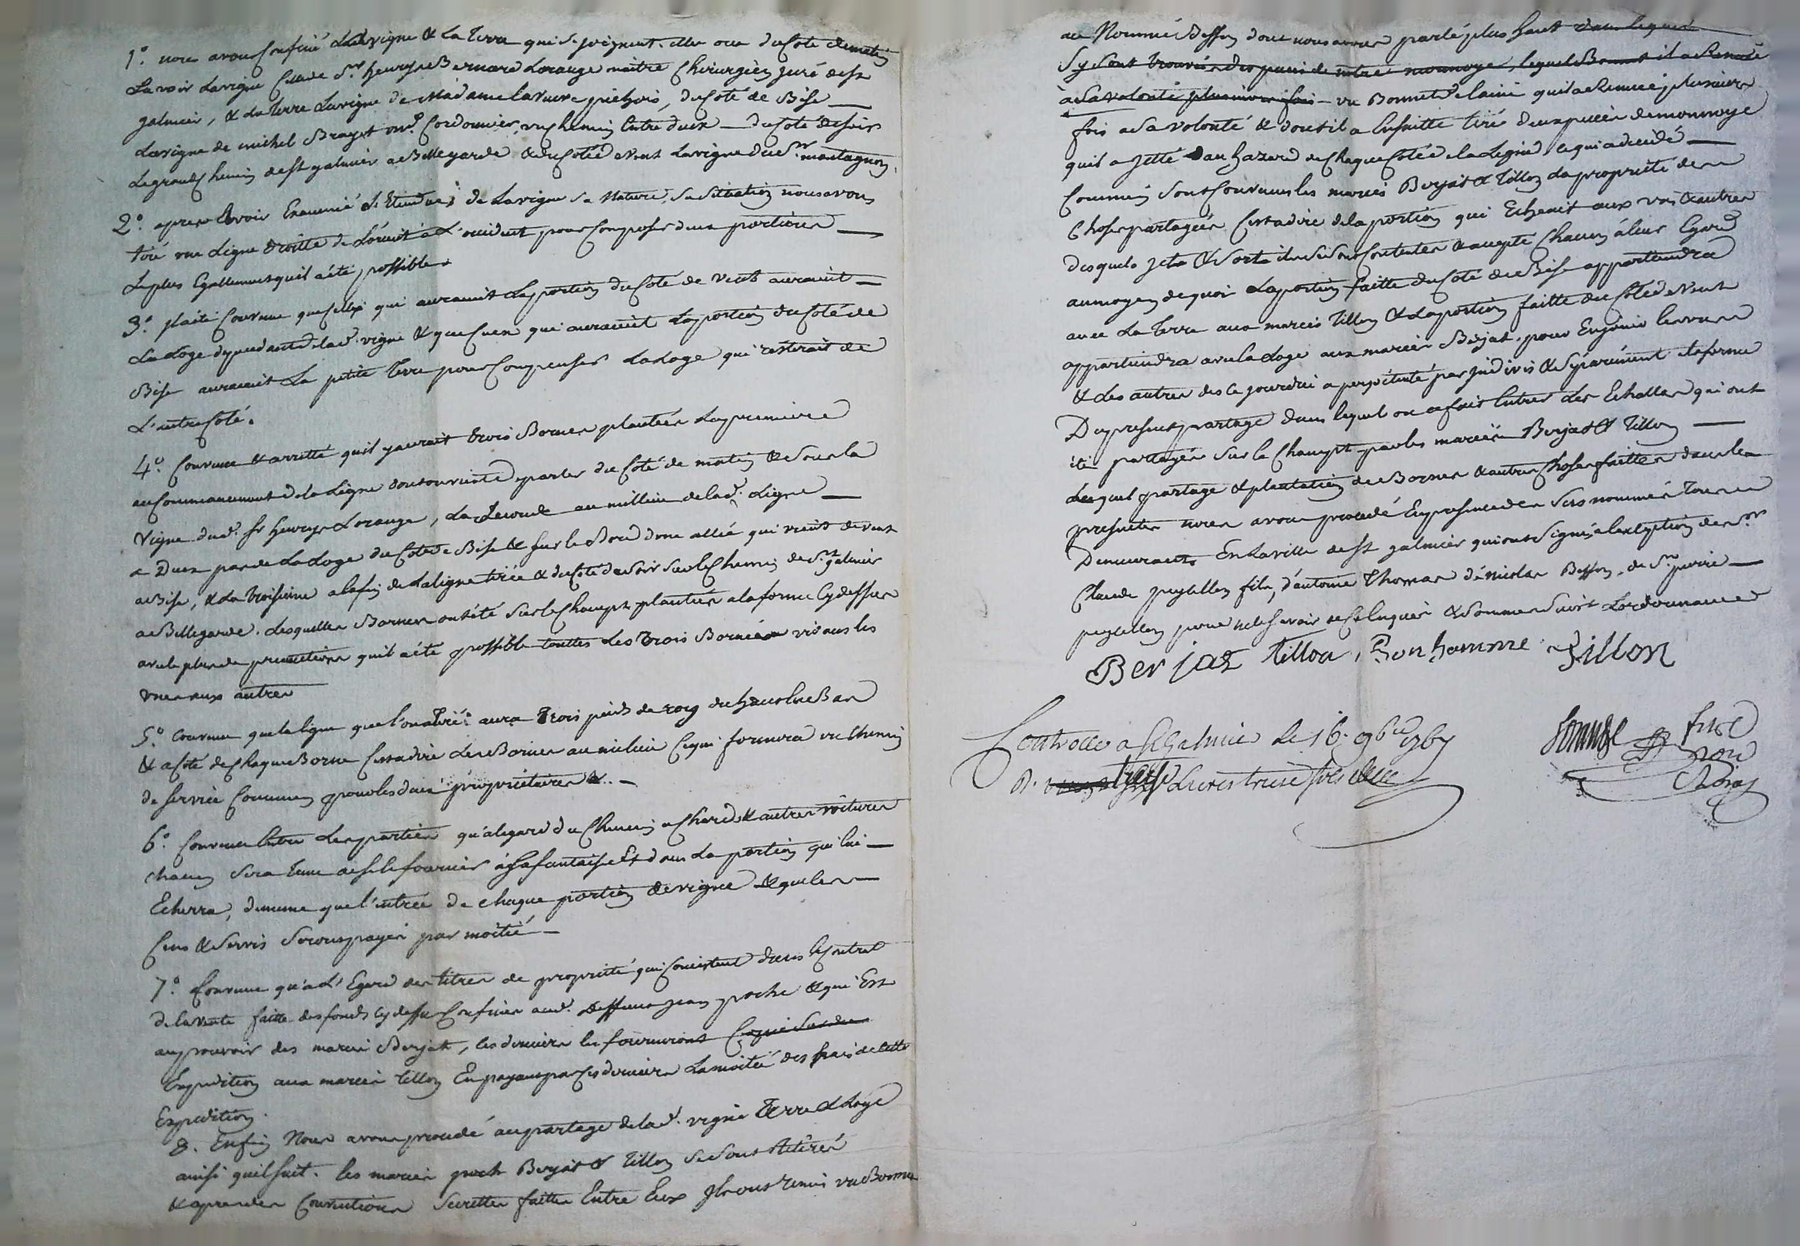 1.° nous avons Confiné Lad. vigne & La Terre qui se joignent. elles ont du Coté de matin
Savoir La vigne Celle de Sr. henrys Bernard Lorange maitre Chirurgien juré de St
galmier, & La Terre La vigne de Madame La veuve pichois, du Coté de Bise
La vigne de michel Brayet me. Cordonnier, un chemin Entre deux — du Coté de soir
Le grand Chemin de St galmier a Bellegarde & du Coté de vent La vigne du Sr. montagnon.
2.° apres avoir Examiné L'Etendue de La vigne Sa Nature, Sa Situation nous avons
tiré une Ligne droitte de L'orient a L'occident pour Composer deux portions
Le plus Egallement qu'il a été possible
3.° a été Convenu que Ceux qui auraient La portion du Coté de vent auraient
La Loge dependante de lad. vigne & que Ceux qui auraient La portion du Coté de
Bise auraient La petite Terre pour Compenser La Loge qui resterait de
L'autre Coté.
4.° Convenu & arretté qu'il y aurait trois Bornes plantées La premiere
au Commancement de la Ligne dont on vient de parler du Coté de matin & Sur la
vigne dud. Sr henrys Lorange, La Seconde au millieu de lad. Ligne
a Deux pas de La Loge du Coté de Bise & sur le Bord d'une allée qui vient de vent
a Bise, & La troisieme a la fin de La ligne tirée & du Coté du Soir Sur le Chemin de St. galmier
a Bellegarde. Lesquelles Bornes ont été Sur le Champ plantées a la forme Cy dessus
avec le plus de precautions qu'il a été possible touttes Les trois Bornées vis a vis les
unes aux autres
5.° Convenu que la ligne que l'on a tiré aura trois pieds de
& a Coté de Chaque Borne C'est a dire Les Bornes au milieu Ce qui formera un Chemin
de Service Commun pour les deux propriétaires &. —
6.° Convenu Entre Les parties qu'a l'egard du Chemin a Chard & autres voitures
chacun Sera Tenu de se le fournir a Sa fantaisie Et dans La portion qui lui
Echerra, de meme que l'entrée de chaque portion de vigne & que les
Cens & Servis Seront payés par moitié —
7.° Convenu qu'a L'Egard des titres de propriété qui Consistent dans le Contrat
de la vente faitte des fonds Cy dessus Confinés aud. deffunt jean poche & qui Est
au pouvoir des mariés Berjat, les derniers les fourniront
Expedition aux mariés tillon En payant par Ces derniers La moitié des frais de Cette
Expedition.
8. Enfin Nous avons procedé au partage de lad. vigne Terre & Loge
ainsi qu'il suit. les mariés poch Berjat & Tillon Se Sont Retirés
& apres des Conventions Secrettes faittes Entre Eux Ils ont remis un Bonnet
au Nommé Besson dont nous avons parlé plus haut dans lequel
Sy Sont trouvés des pieces de notre monnoye, lequel Bonnet il a Remué
a Sa volonté plusieurs fois — un Bonnet de laine qu'il a Remué plusieurs
fois a Sa volonté & dont il a Ensuitte tiré deux pieces de monnoye
qu'il a jetté au hazard de Chaque Coté de la Ligne, Ce qui a decidé
Comme en Sont Convenus les mariés Berjat & Tillon La propriété des
Choses partagées C'est a dire de la portion qui Echerrait aux uns & autres
desquels jets & Sorts ils Se Sont Contentés & accepté Chacun a leur Egard
au moyen de quoi La portion faitte du Coté de Bise appartiendra
avec La Terre aux mariés Tillon & La portion faitte du Coté de vent
appartiendra avec la Loge aux mariés Berjat. pour En jouir les uns
& les autres des Ce jourdui a perpétuité par Indivis & Séparément a la forme
Du present partage dans lequel on a fait Entrer des Echallas qui ont
été partagés Sur le Champt par les mariés Berjat & Tillon
Lequel partage & plantation de Bornes & autres choses faittes dans les
presentes nous avons procedé En presence des Sus nommés Tous
Demeurants En La ville de St galmier qui ont Signé a l'exception de Sr
Claude peytellon fils, d'antoine Thomas de Nicolas Besson, de Sr. pierre
peytellon pour ne le Savoir de Ce Enquis & Sommés Suivt. L'ordonnance
Berjat tillon, Bonhomme Tillon
Controllé a St Galmier le 16. 9bre 1767
R. treize Livres treize sols